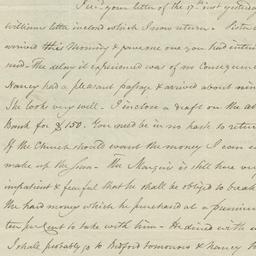 I rec'd your letter of the 17th inst yesterday
Williams letter inclosed which I now return. Peter
arrived this Monday & gave me one you had intend
ned. The delay it experienced was of no consequence
Nancy had a pleasant passage & arrived about nine
She look very well. I inclose a draft on the
Bank for $150. You need be in no hask to retur
If the Church should want the money I can e
make up the sum. The Marquis is still here very
impatient & fearful that he shall be obliged to break
the hard money which he purchased at a premium
ten per Cent to take with him. He dined with u
I shall probably go to Bedford tomorrow & Nancy